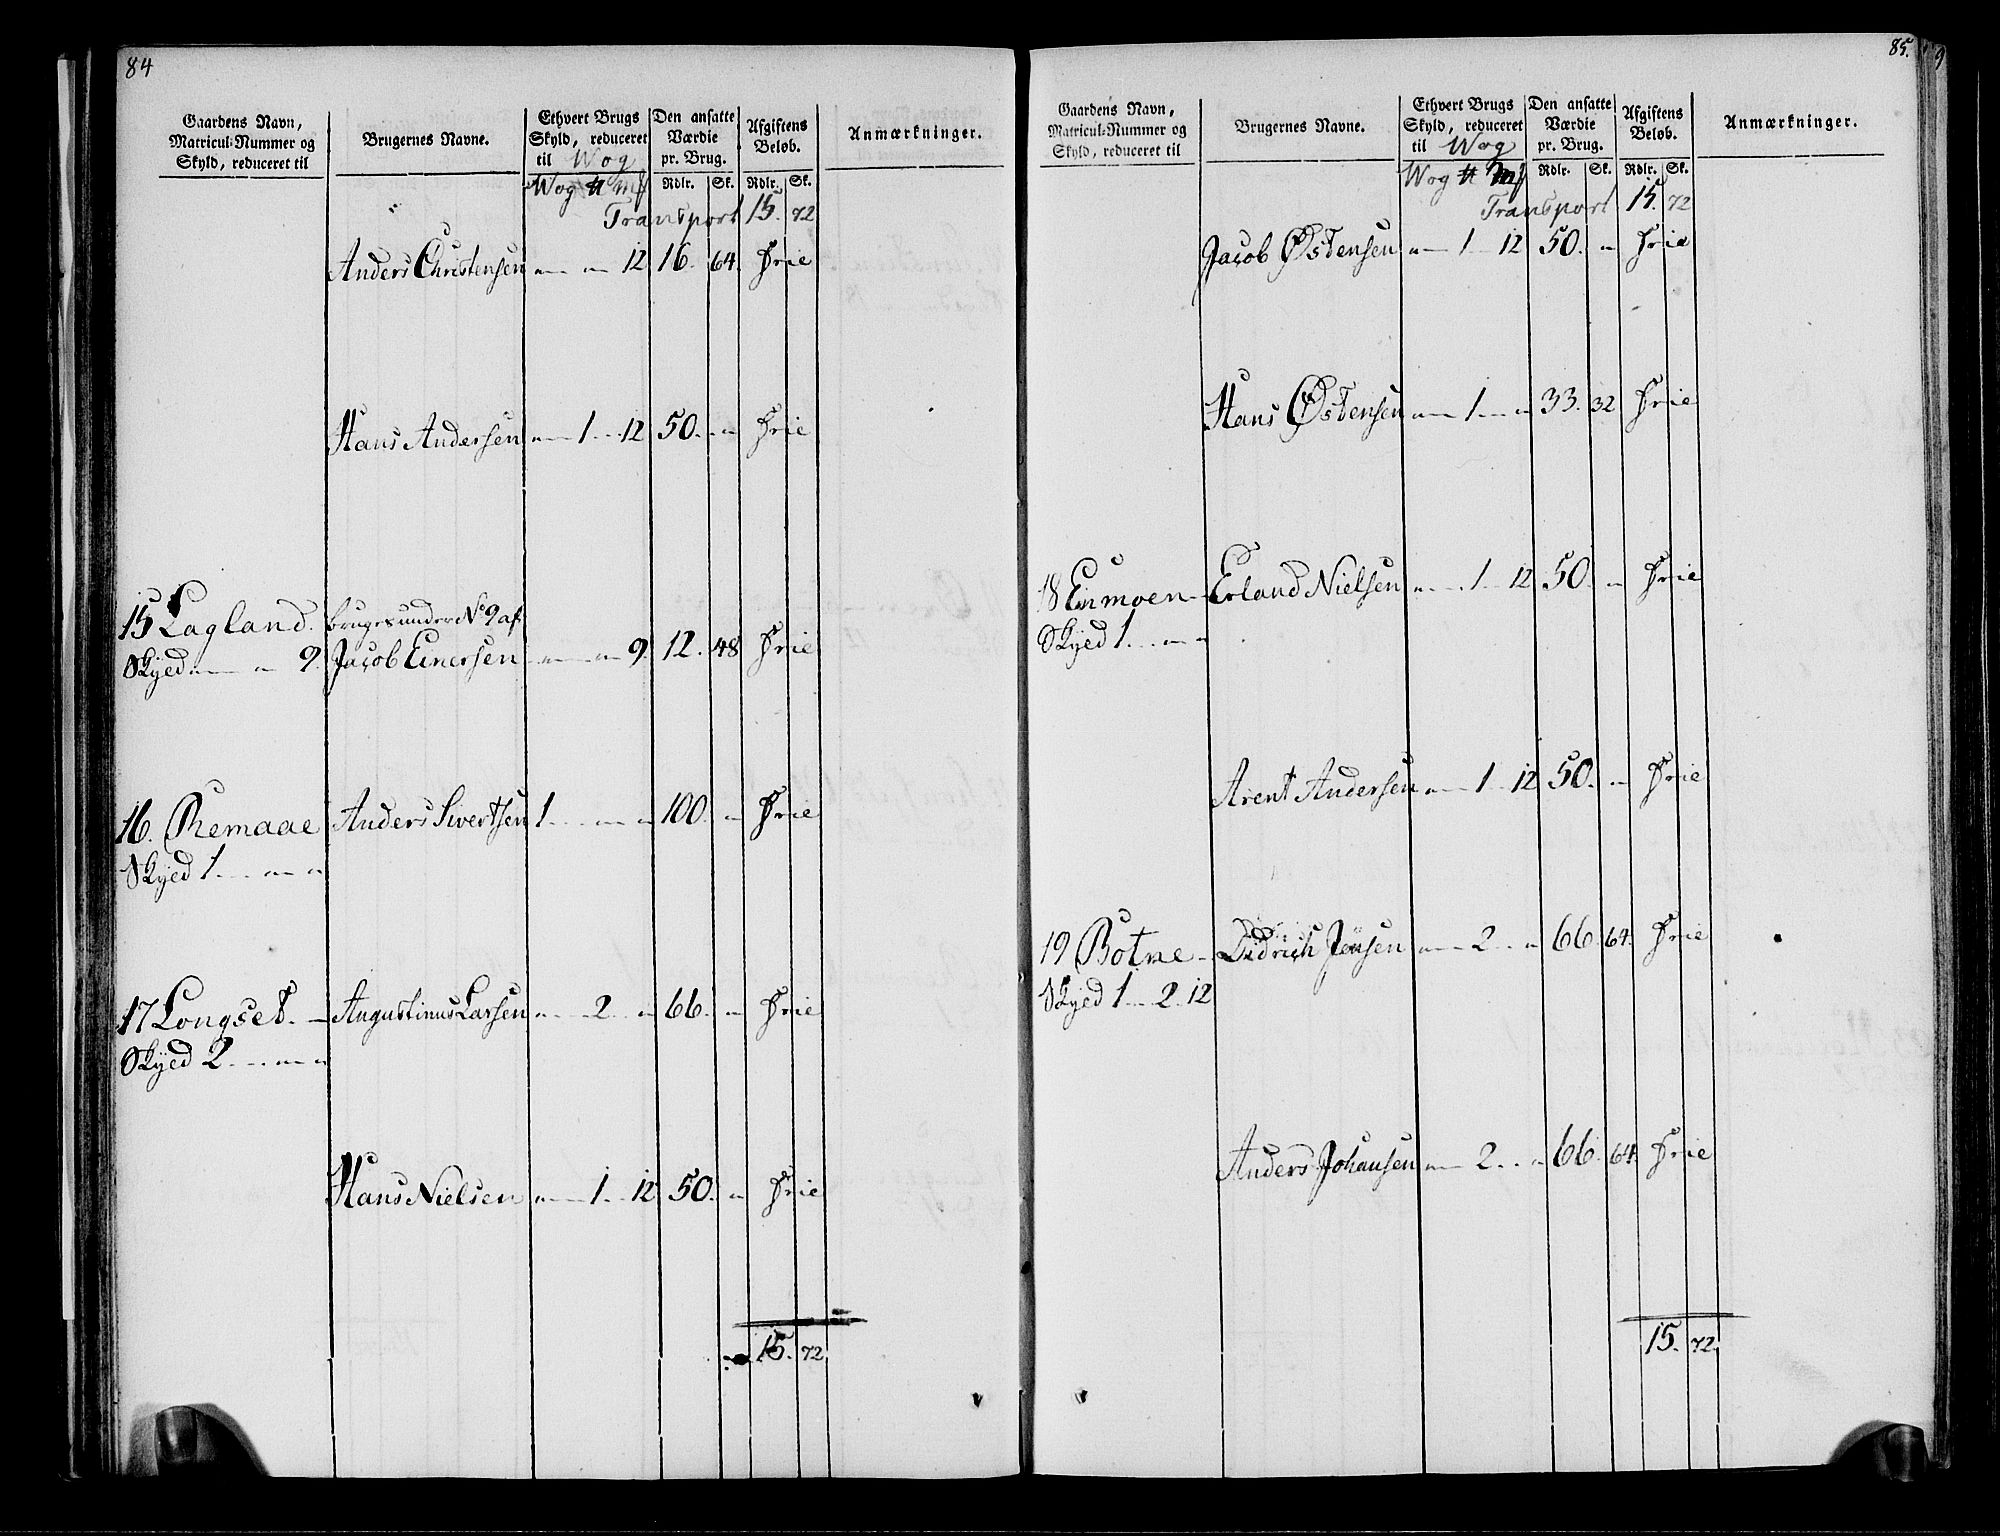 84
Gaardens Navn, Matricul-Nummer og Skyld, reduceret til
Brugernes Navne.
Ethvert Brugs Skyld, reduceret til Wog
Den ansatte Værdie pr. Brug.
Afgiftens Beløb.
Anmærkninger.
Wog ℔ mk Rdlr. Sk. Rdlr. Sk.
Transport 15. 72
Anders Christensen „ „ 12 16. 64. Frie
Hans Andersen „ 1 12 50. „ Frie
15 Lagland. bruges under No 9 af
Skyed „ „ 9. Jacob Einersen „ „ 9. 12. 48 Frie
16. Remaae Anders Sivertsen 1 „ „ 100. „ Frie
Skyed 1 „ „
17 Longset. Augustinus Larsen „ 2 „ 66. „ Frie
Skyed 2 „ „
Hans Nielsen „ 1 12 50. „ Frie
15. 72
85.
Gaardens Navn, Matricul-Nummer og Skyld, reduceret til
Brugernes Navne.
Ethvert Brugs Skyld, reduceret til Wog
Den ansatte Værdie pr. Brug.
Afgiftens Beløb.
Anmærkninger.
Wog ℔ mk Rdlr. Sk. Rdlr. Sk.
Transport 15. 72
Jacob Østensen „ 1 12 50. „ Frie
Hans Østensen „ 1 „ 33. 32 Frie
18 Einmoen Erland Nielsen „ 1 12 50. „ Frie
Skyed 1 „ „
Arent Andersen „ 1 12 50. „ Frie
19 Botne Didrich Jensen „ 2 „ 66 64. Frie
Skyed 1 2 12
Anders Johansen „ 2 „ 66. 64. Frie
15. 72.